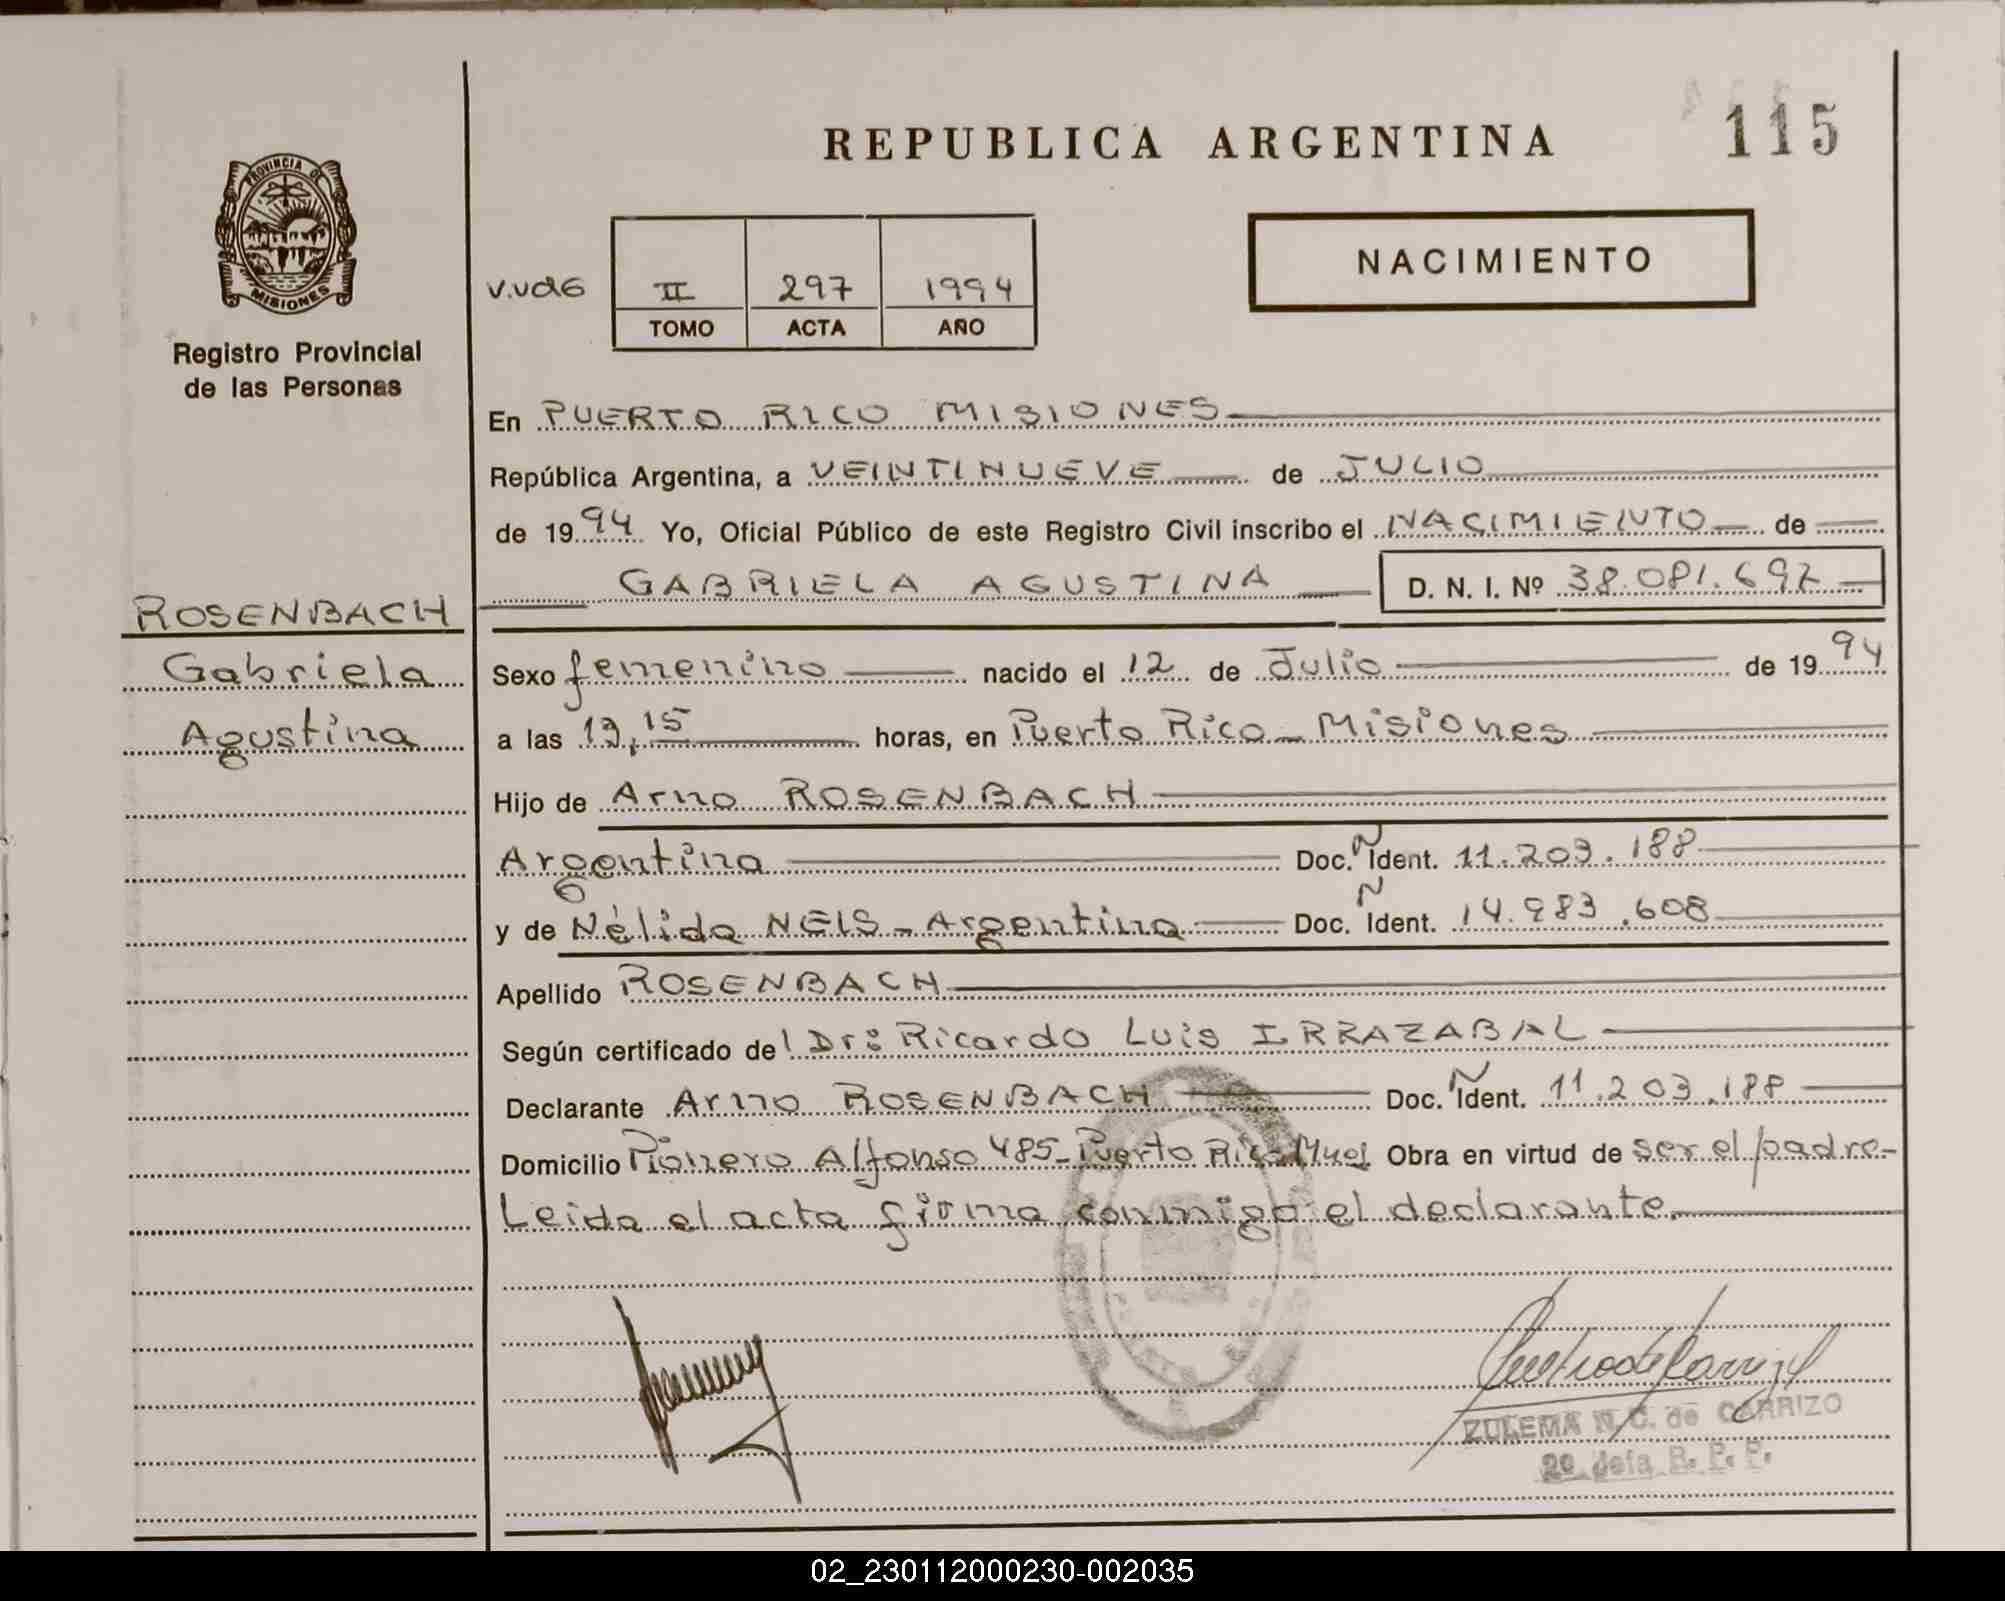 REPUBLICA ARGENTINA
115
PROVINCIA DE
MISIONES
Registro Provincial
de las Personas
II 297 1994
TOMO ACTA AÑO
NACIMIENTO
En PUERTO RICO MISIONES
República Argentina, a VEINTINUEVE de JULIO
de 1994 Yo, Oficial Público de este Registro Civil inscribo el NACIMIENTO de
GABRIELA AGUSTINA D. N. I. Nº 38.081.697
ROSENBACH
Gabriela
Agustina
Sexo femenino nacido el 12 de Julio de 1994
a las 13,15 horas, en Puerto Rico - Misiones
Hijo de Arno ROSENBACH
Argentino Doc. N Ident. 11.203.188
y de Nélida NEIS - Argentina Doc. N Ident. 14.983.608
Apellido ROSENBACH
Según certificado del Dr: Ricardo Luis IRRAZABAL
Declarante Arno ROSENBACH Doc. N Ident. 11.203.188
Domicilio Pionero Alfonso 485 - Puerto Rico Mnes Obra en virtud de ser el padre-
Leida el acta firma conmigo el declarante.
ZULEMA N. C. de CARRIZO
2º Jefa R. P. P.
02_230112000230-002035